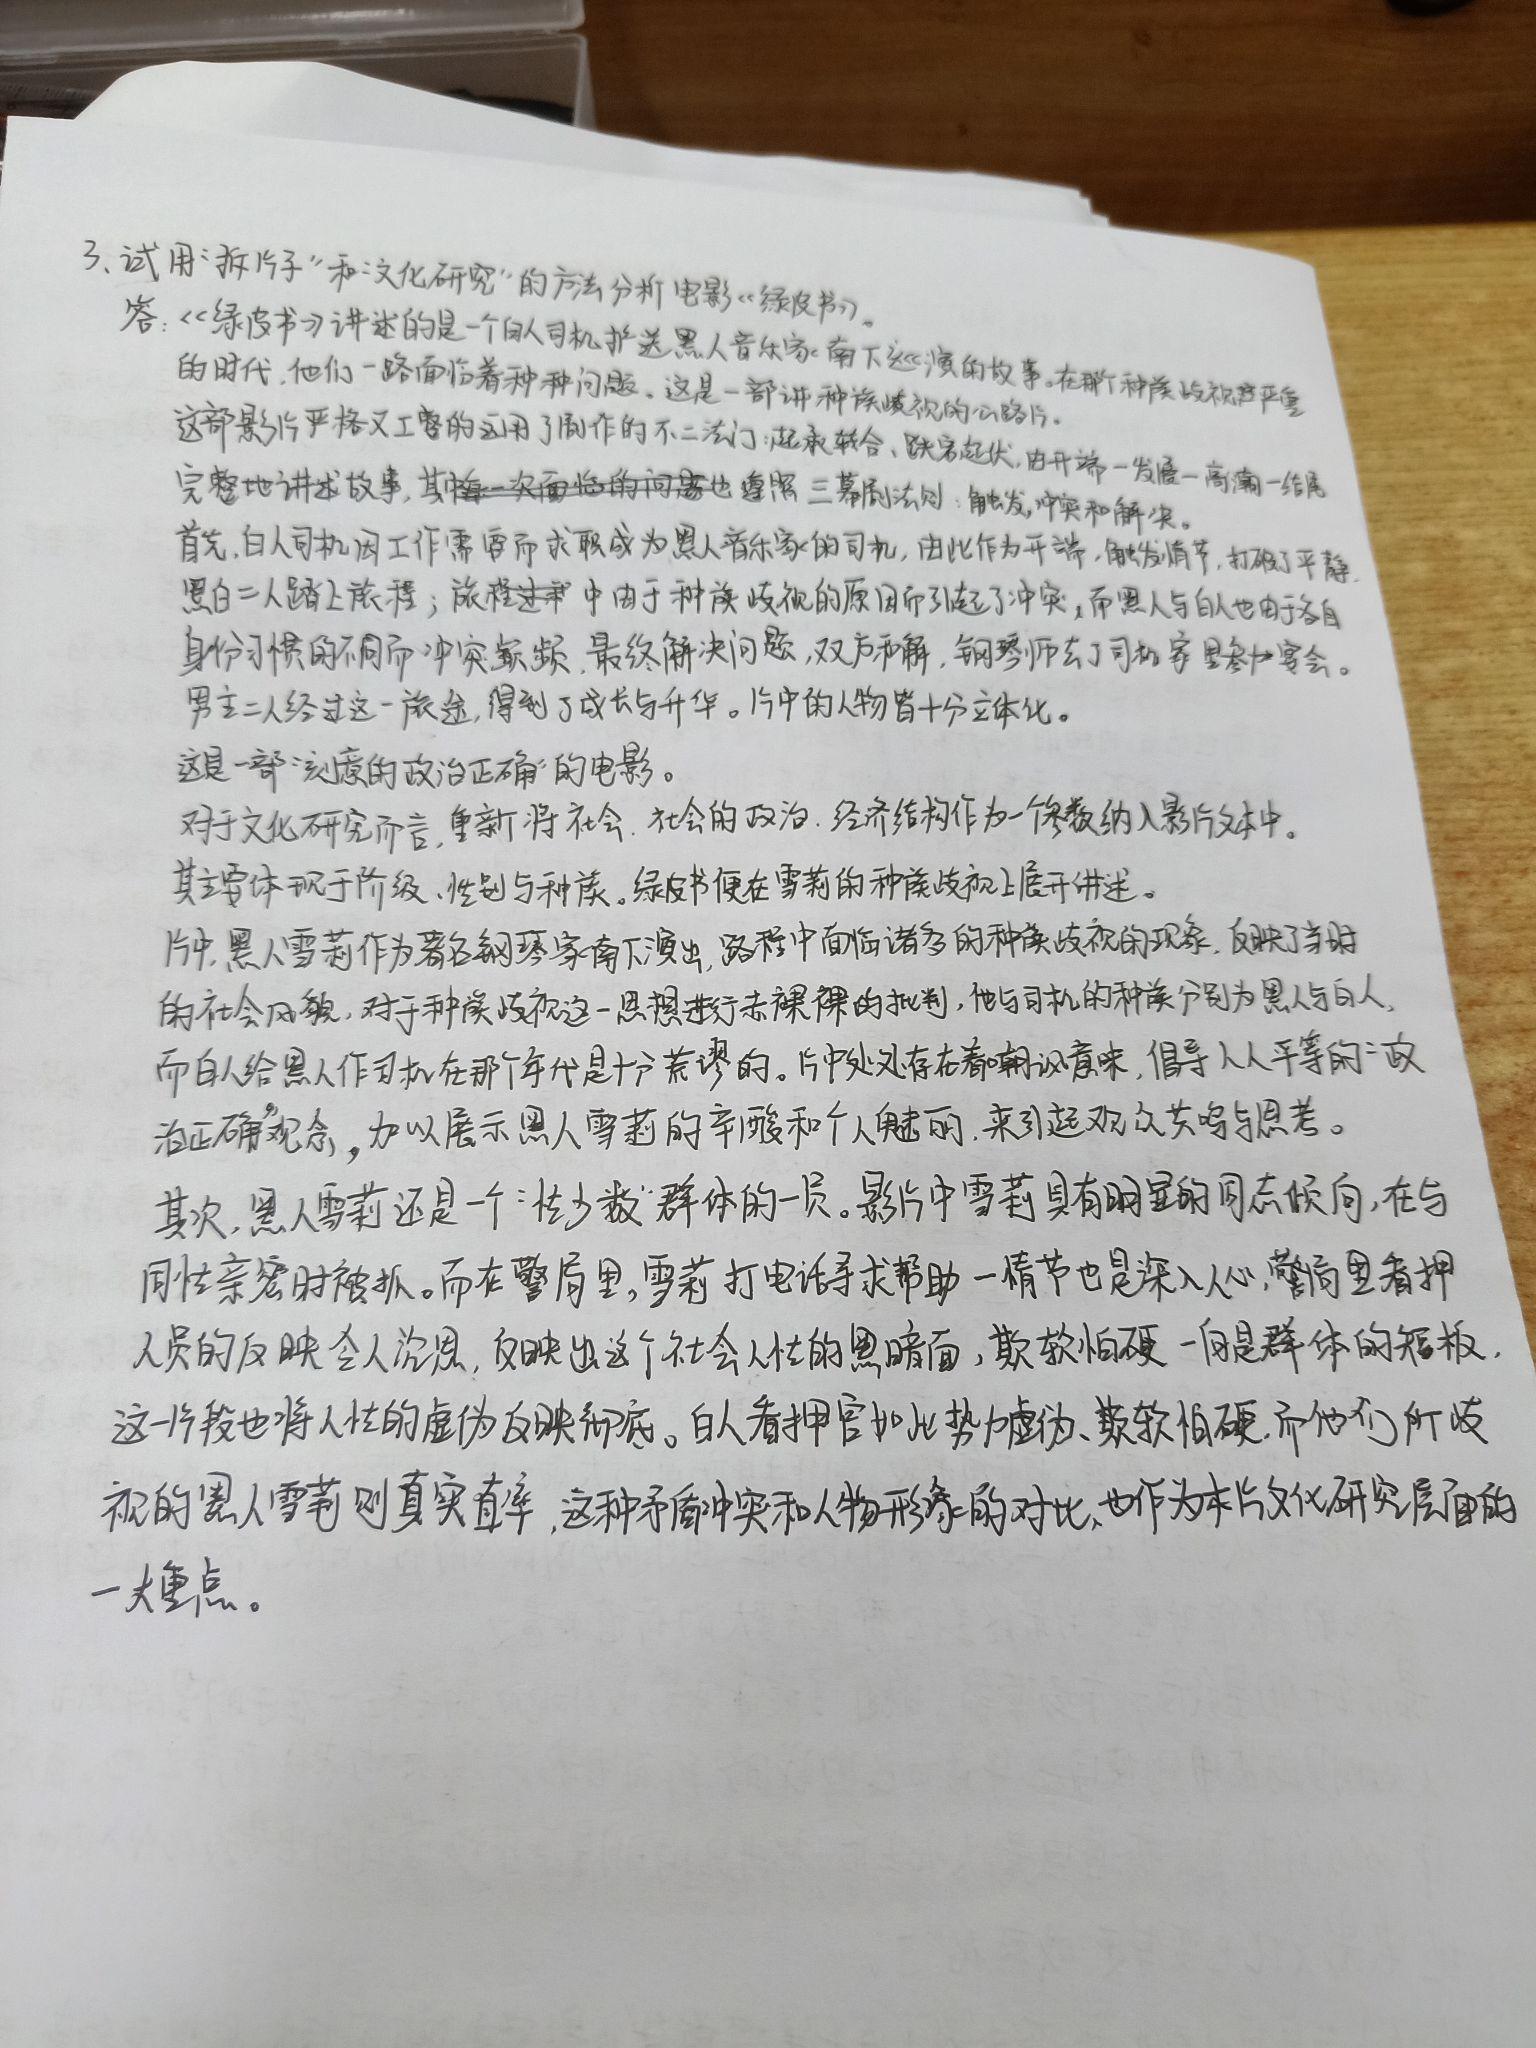 3、试用“拆片子”和“文化研究”的方法分析电影《绿皮书》。
答：《绿皮书》讲述的是一个白人司机护送黑人音乐家南下巡演的故事。在那个种族歧视严重
的时代，他们一路面临着种种问题。这是一部讲种族歧视的公路片。
这部影片严格又工整的运用了剧作的不二法门：起承转合、跌宕起伏，由开端—发展—高潮—结尾
完整地讲述故事，其中每一次面临的问题也遵照三幕剧法则：触发，冲突和解决。
首先，白人司机因工作需要而求职成为黑人音乐家的司机，由此作为开端，触发情节，打破了平静，
黑白二人踏上旅程；旅程过中由于种族歧视的原因而引起了冲突，而黑人与白人也由于各自
身份习惯的不同而冲突频频，最终解决问题，双方和解，钢琴师去了司机家里参加宴会。
男主二人经过这一旅途，得到了成长与升华。片中的人物皆十分立体化。
这是一部“刻意的政治正确”的电影。
对于文化研究而言，重新将社会、社会的政治、经济结构作为一个参数纳入影片文本中。
其主要体现于阶级、性别与种族。绿皮书便在雪莉的种族歧视上展开讲述。
片中，黑人雪莉作为著名钢琴家南下演出，路程中面临诸多的种族歧视的现象，反映了当时
的社会风貌，对于种族歧视这一思想进行赤裸裸的批判，他与司机的种族分别为黑人与白人，
而白人给黑人作司机在那个年代是十分荒谬的。片中处处存在着嘲讽意味，倡导人人平等的“政
治正确”观念，加以展示黑人雪莉的辛酸和个人魅力，来引起观众共鸣与思考。
其次，黑人雪莉还是一个“性少数”群体的一员。影片中雪莉具有明显的同志倾向，在与
同性亲密时被抓。而在警局里，雪莉打电话寻求帮助一情节也是深入人心，警局里看押
人员的反映令人沉思，反映出这个社会人性的黑暗面，欺软怕硬一向是群体的短板，
这一片段也将人性的虚伪反映彻底。白人看押官如此势力虚伪、欺软怕硬，而他们所歧
视的黑人雪莉则真实直率，这种矛盾冲突和人物形象的对比，也作为本片文化研究层面的
一大重点。